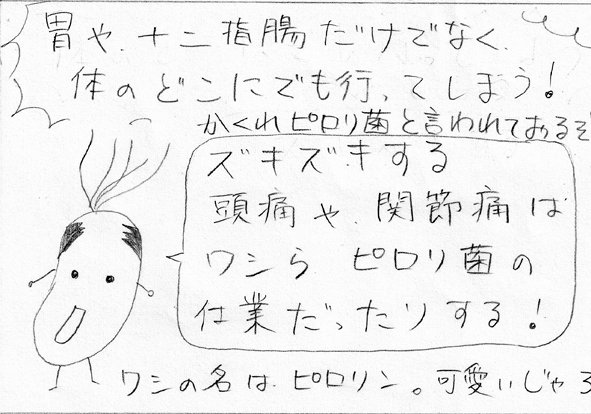 胃や、十二指腸だけでなく、
体のどこにでも行ってしまう!
かくれピロリ菌と言われておるぞ
ズキズキする
頭痛や、関節痛は
ワシら、ピロリ菌の
仕業だったりする!
ワシの名は、ピロリン。可愛いじゃろ